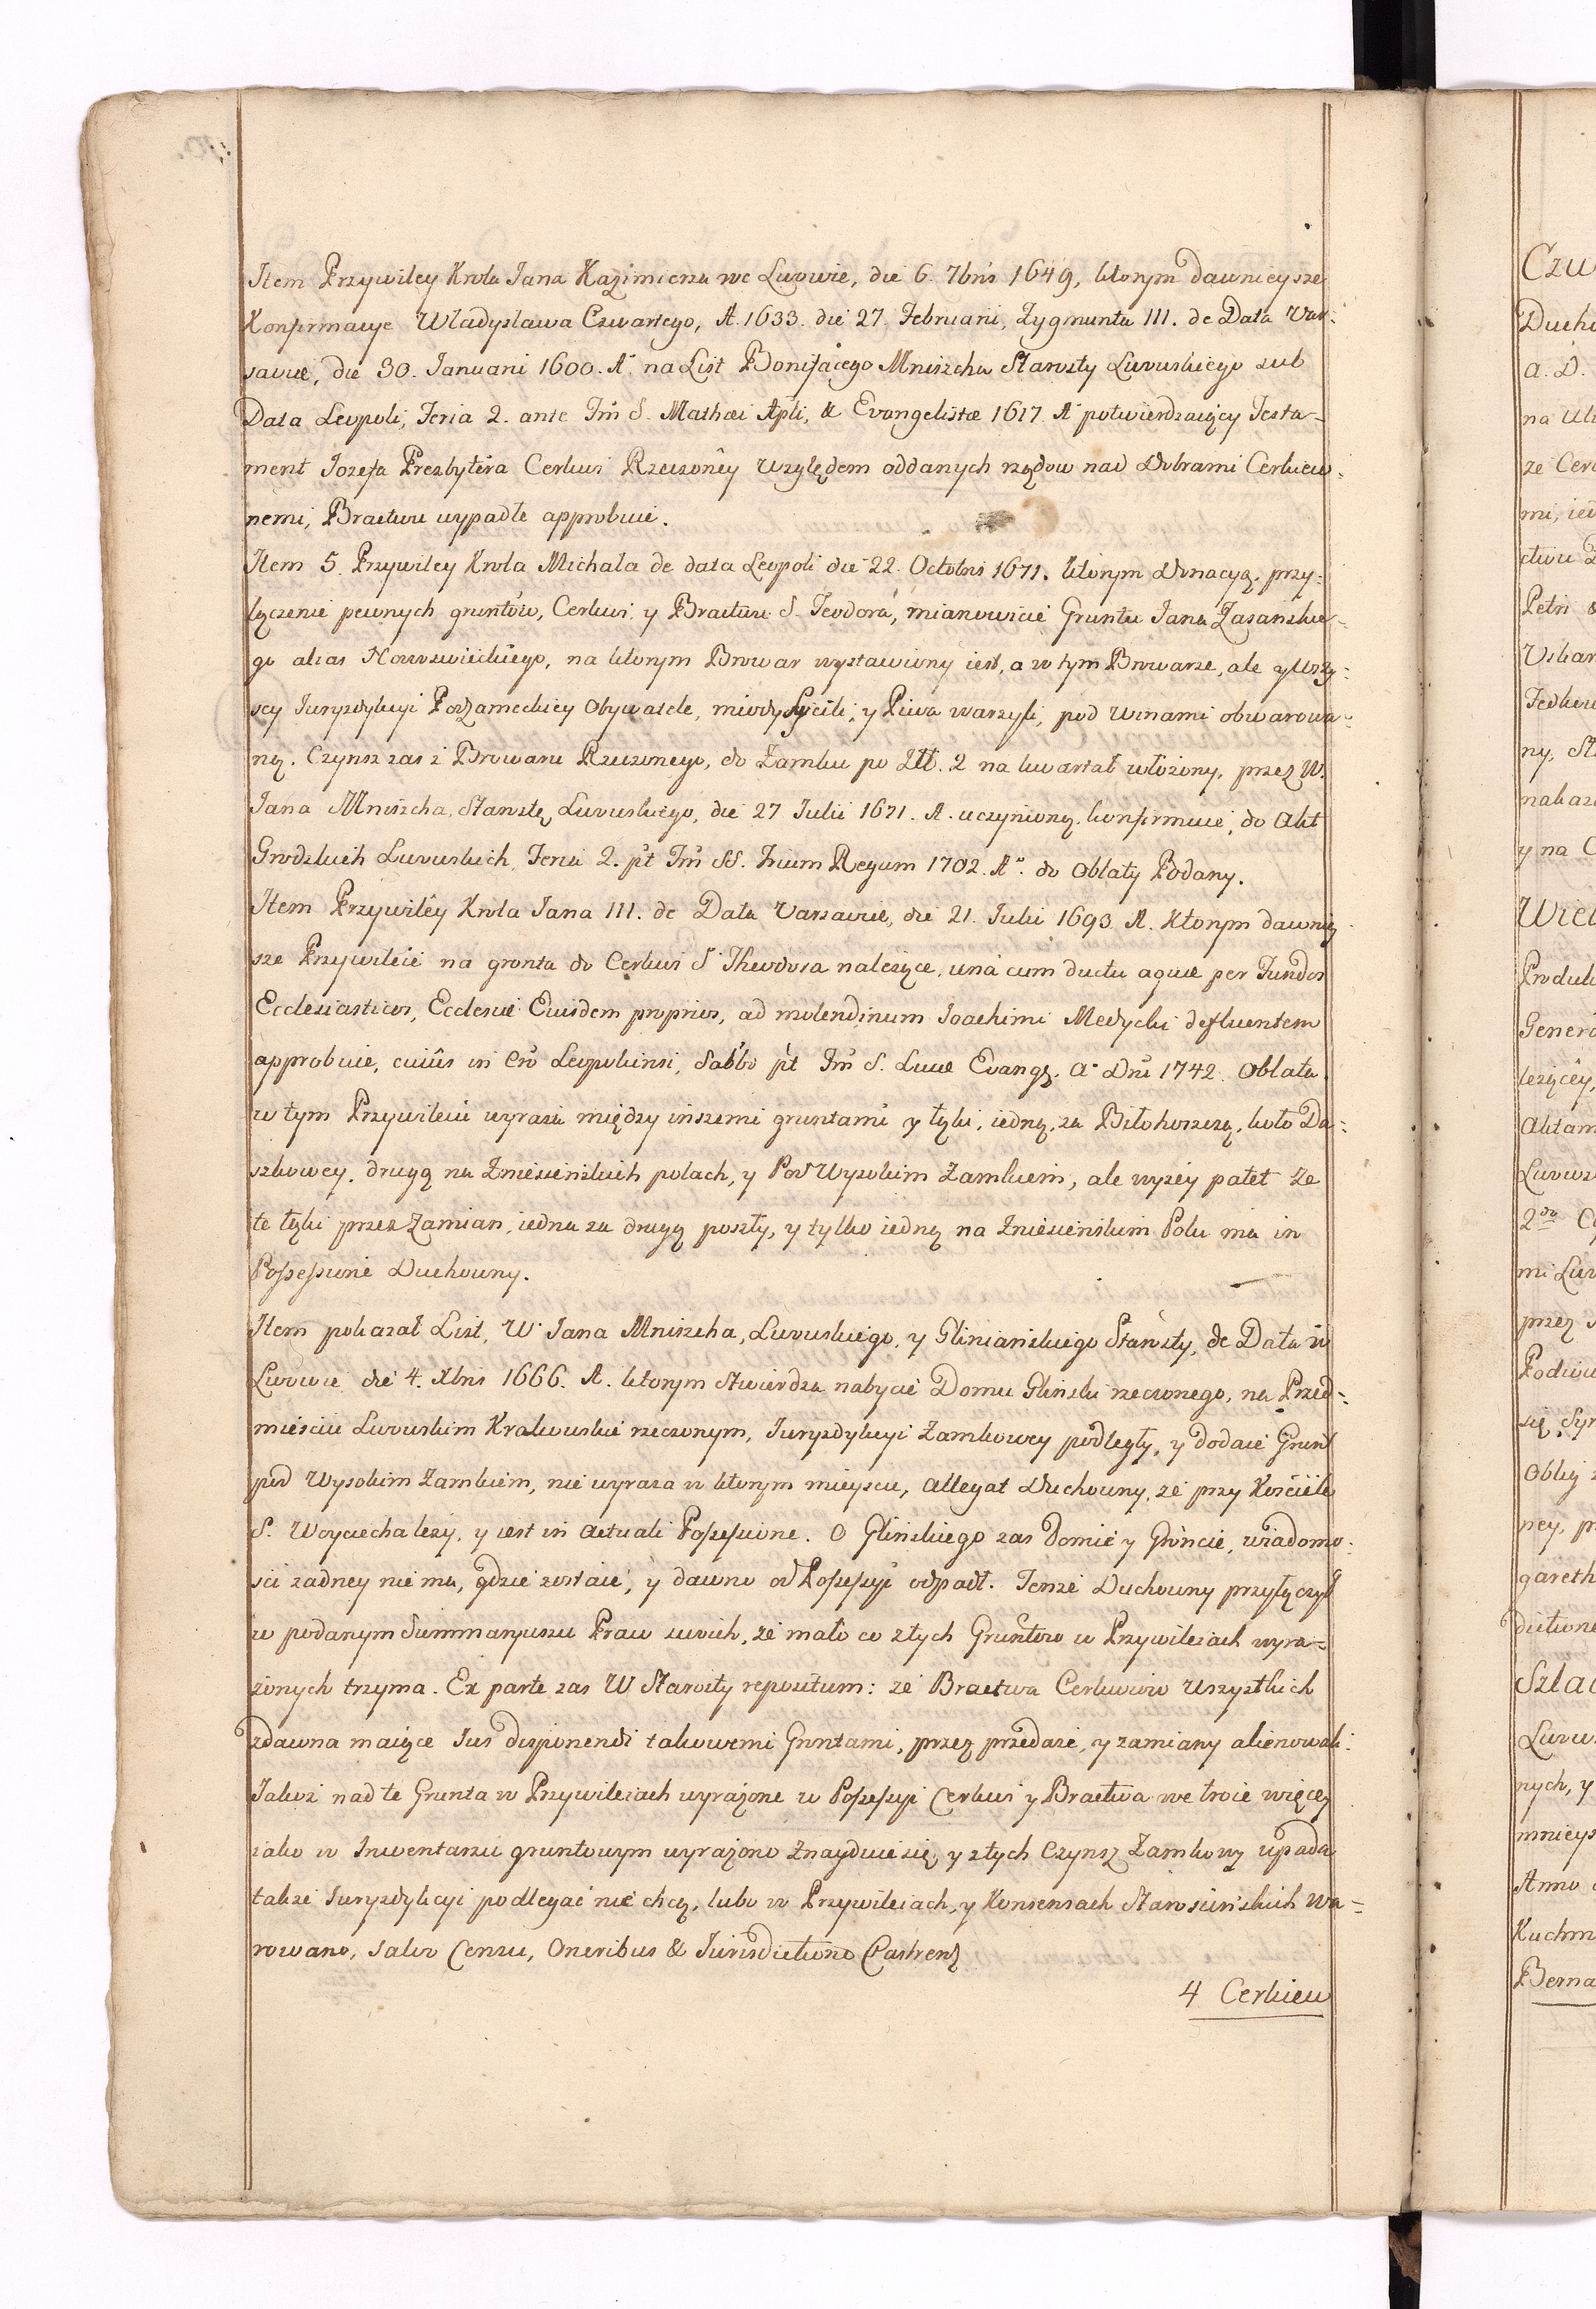 Item Przywiley Krola Jana Kazimierza we Lwowie, die 6. 7bris 1649, ktorym dawnieysze
Konfirmacye Wladyslawa Czwartego, A. 1633. die 27. Februarii, Zygmunta III. de Data Var-
saviæ, die 30. Januarii 1600. A° na List Bonifacego Mniszcha Starosty Lwowskiego sub
Data Leopoli, Feria 2. ante Fm̃ S. Mathæi Apli, & Evangelistæ 1617 A° potwierdzaiący Testa-
ment Jozefa Prezbytera Cerkwi Rzeczoney względem oddanych rządow nad Dobrami Cerkiew-
nemi, Bractwu wypadłe approbuie.
Item 5. Przywiley Krola Michala de data Leopoli die 22. Octobris 1671. ktorym Donacyą, przy-
łączenie pewnych gruntow, Cerkwi y Bractwu S. Teodora, mianowicie Gruntu Jana Zasanskie-
go alias Nowoswieckiego, na ktorym Browar wystawiony iest, a w tym Browarze, ale y wszy-
scy Juryzdykcyi Podzameckiey Obywatele, miody sycili, y Piwa warzyli, pod winami obwarowa-
ną. Czynsz zas z Browaru Rzeczonego, do Zamku po Złł. 2 na kwartał włożony, przez W.
Jana Mniszcha, Starostę Lwowskiego, die 27 Julii 1671. A. uczynioną konfirmuie, do Akt
Grodzkich Lwowskich, Feria 2. pt Fm̃ SS. Trium Regum 1702. A°. do Oblaty Podany.
Item Przywiley Krola Jana III. de Data Varsaviæ, die 21. Julii 1693. A. Ktorym dawniey
sze Przywileie na gronta do Cerkwi S. Theodora należące, una cum ductu aquæ per Fundos
Ecclesiasticos, Ecclesiæ Eiusdem proprios, ad molendinum Joachimi Medycki defluentem
approbuie, cuius in Cro Leopoliensi, Sabbo pt Fm̃ S. Lucæ Evang. A° Dni 1742. Oblata.
w tym Przywileiu wyraża między inszemi gruntami y łąki, iedną, za Biłohorszczą, koło Da-
szkowcy, drugą na Zniesienskich polach, y Pod Wysokim Zamkiem, ale wyzey patet że
te łąki przez Zamian, iedna za drugą poszły, y tylko iedną na Zniesienskim Polu ma in
Possessione Duchowny.
Item pokazał List, W. Jana Mniszcha, Lwowskiego, y Glinianskiego Starosty, de Data w
Lwowie die 4. Xbris 1666. A. ktorym stwierdza nabycie Domu Glinski rzeczonego, na Przed-
mieściu Lwowskim Krakowskie rzeczonym, Juryzdykcyi Zamkowey podległy, y dodaie Grunt
pod Wysokim Zamkiem, nie wyraza w ktorym mieyscu, Allegat Duchowny, że przy Kościele
S. Woyciecha lezy, y iest in actuali Possessione. O Glinskiego zas Domie y Gróncie, wiadomo-
sci zadney nie ma, gdzie zostaie, y dawno od Possessyi odpadł. Tenże Duchowny przyłączył
w podanym Summaryuszu Praw swoich, że mało co z tych Gruntow w Przywileiach wyra-
żonych trzyma. Ex parte zas W Starosty repositum: że Bractwa Cerkwiow wszystkich
zdawna maiące Jus disponendi takowemi Grontami, przez przedaże, y zamiany alienowali.
Jakoż nad te Grunta w Przywileiach wyrażone w Possessyi Cerkwi y Bractwa we troie więcey
iako w Inwentarzu gruntowym wyrażono znayduie się, y z tych Czynsz Zamkowy upada
także Juryzdykcyi podlegać nie chcą, lubo w Przywileiach, y Konsensach Starościńskich wa-
rowano, Salvo Censu, Oneribus & Jurisdictione Castrens
4 Cerkiew